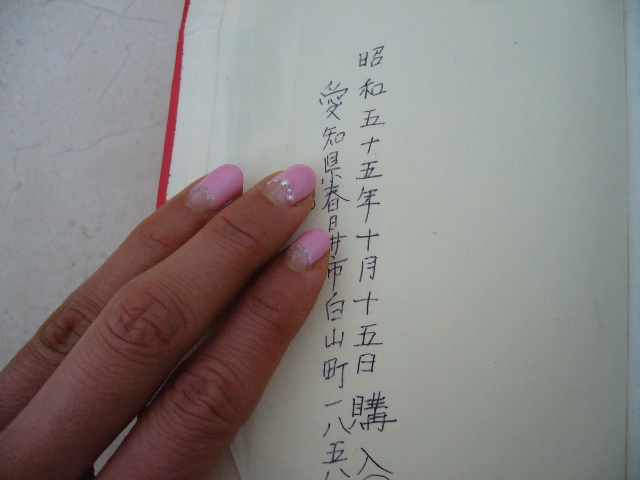 昭和五十五年十月十五日購入
愛知県春日井市白山町一八五八